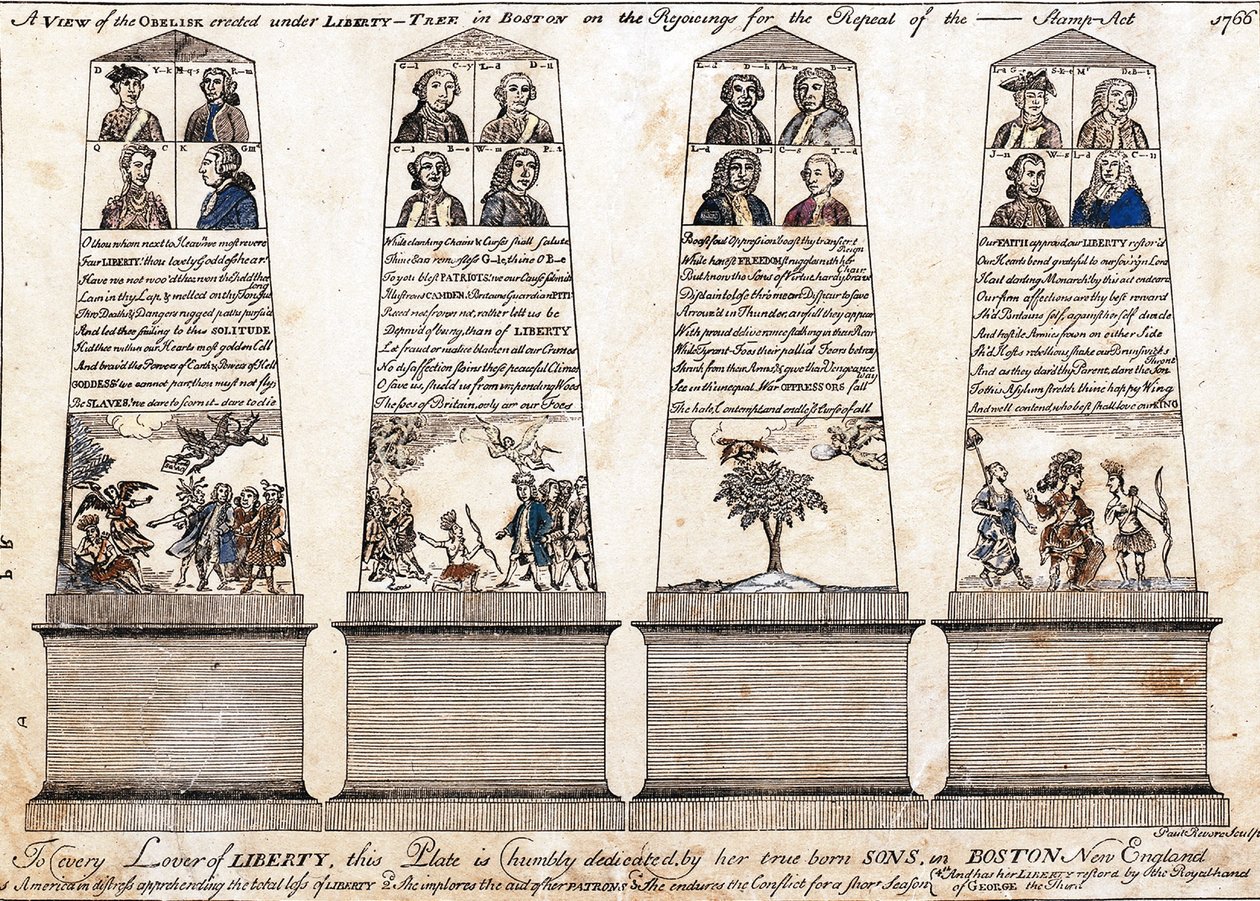 A VIEW of the OBELISK erected under LIBERTY-TREE in BOSTON on the Rejoicings for the Repeal of the —— Stamp-Act 1766
D Y-k M-q-s R-m
Q C K G m
O thou whom next to Heav'n we most revere
Fair LIBERTY! thou lovely Goddess hear!
Have we not woo'd thee, won thee, held thee long
Lain in thy Lap & melted on thy Tongue
Thro Deaths & Dangers rugged paths pursu'd
And led thee smiling to this SOLITUDE
Hid thee within our Hearts most golden Cell
And brav'd the Powers of Earth & Powers of Hell
GODDESS! we cannot part, thou must not fly,
Be SLAVES! we dare to scorn it - dare to die
G-l C-y L-d D-ll
C-l B-e W-m P-t
While clanking Chains & Curses shall salute
Thine Ears remorsless G-le, thine O B-e
To you blest PATRIOTS! we our Cause submit
Illustrous CAMDEN, Britains Guardian, PITT!
Reced not, frown not, rather let us be
Depriv'd of being, than of LIBERTY
Let fraud or malice blacken all our Crimes
No disaffection stains these peaceful Climes
O save us, shield us from impending Woes
The foes of Britain, only are our Foes
L-d D-h A-n B-r
L-d D-l C-s T-d
Boast foul Oppression! boast thy transient Reign
While honest FREEDOM struggles with her Chain
But know the Sons of Virtue, hardy, brave
Disdain to lose thro mean Dispair to save
Arrouz'd in Thunder, awfull they appear
With proud deliverance stalking in their Rear
While Tyrant-Foes their pallid Fears betray
Shrink from their Arms & give their Vengeance way
See in th'unequal War OPPRESSORS fall
The hate, Contempt, and endless Curse of all
L-d S-k-e Mr DeB-t
J-n W-s L-d C-n
Our FAITH approv'd, our LIBERTY restor'd
Our Hearts bend grateful to our sov'rgn Lord
Hail darling Monarch! by this act endear'd
Our firm affections are thy best reward
Sh'd Britains self, against her self divide
And hostile Armies frown on either Side
Sh'd Hosts rebellious shake our Brunswick's Throne
And as they dar'd thy Parent, dare the Son
To this Asylum stretch thine happy Wing
And well contend, who best shall love our KING
Paul Revere Sculp
To every Lover of LIBERTY, this Plate is humbly dedicated, by her true born SONS, in BOSTON New England
America in distress apprehending the total loss of LIBERTY 2d She implores the aid of her PATRONS 3d She endures the Conflict for a short Season 4th And has her LIBERTY restord by the Royal hand of GEORGE the Third